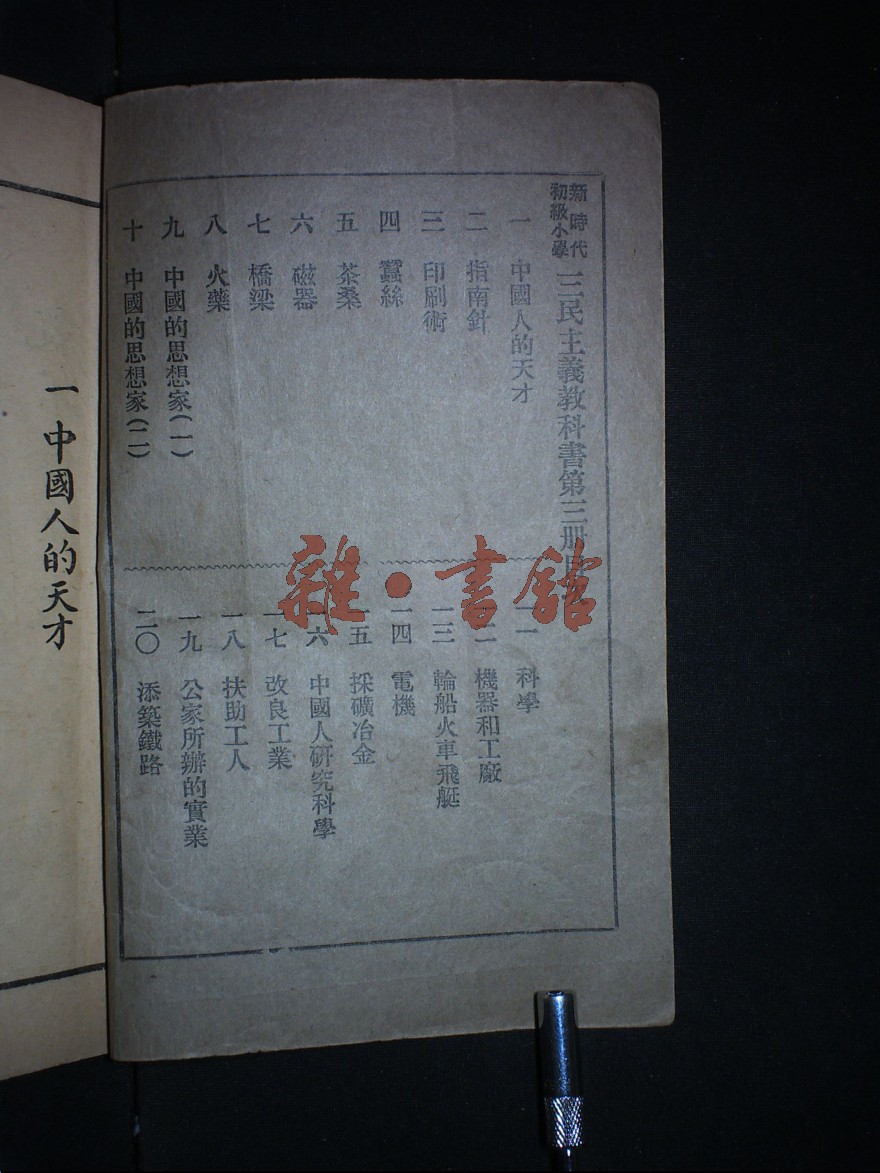 新時代
初級小學
三民主義教科書第三册目
一 中國人的天才
二 指南針
三 印刷術
四 蠶絲
五 茶桑
六 磁器
七 橋梁
八 火藥
九 中國的思想家(一)
十 中國的思想家(二)
一一 科學
一二 機器和工廠
一三 輪船火車飛艇
一四 電機
一五 採礦冶金
一六 中國人研究科學
一七 改良工業
一八 扶助工人
一九 公家所辦的實業
二〇 添築鐵路
一 中國人的天才
雜·書館